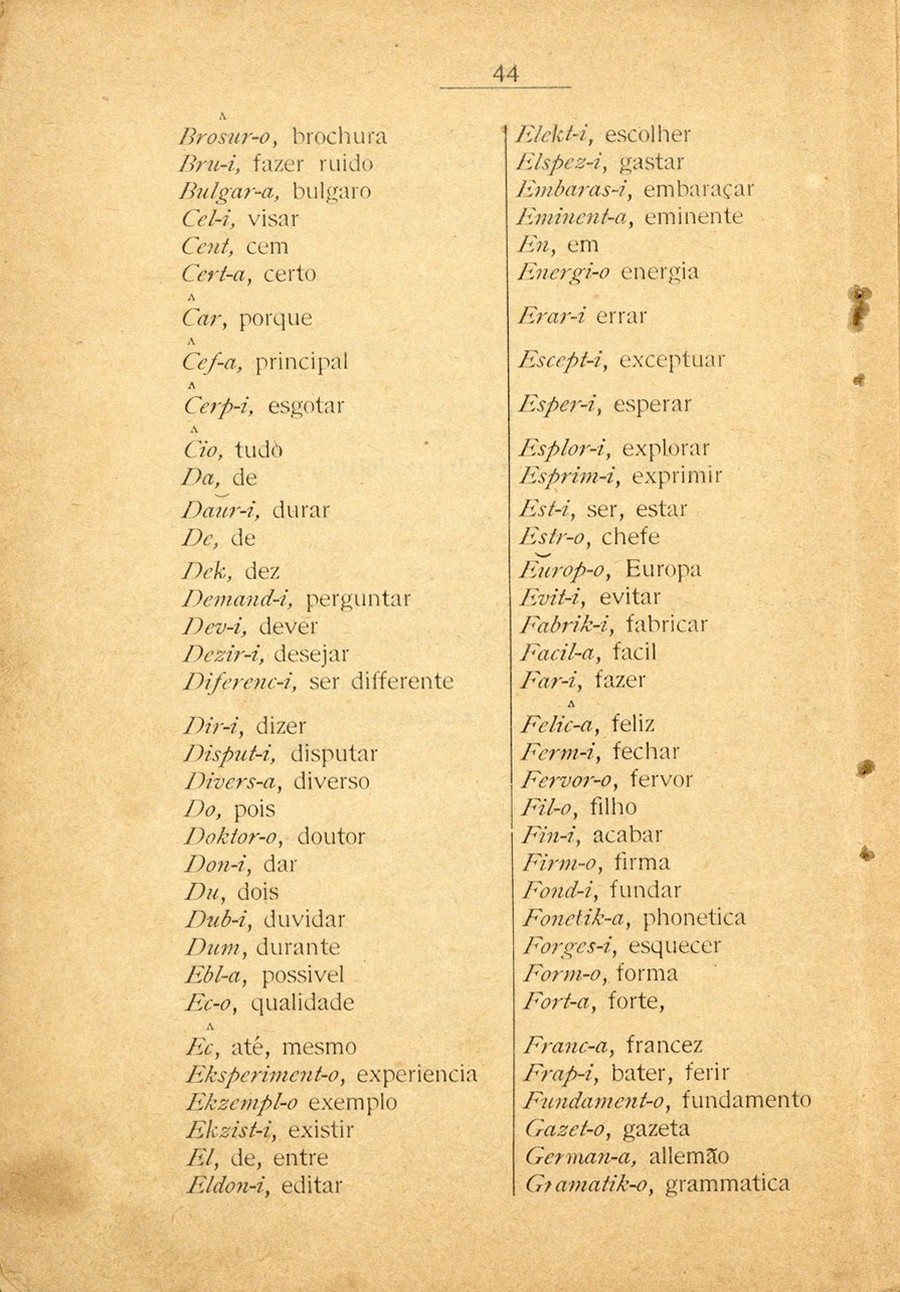 44
Broŝur-o, brochura
Bru-i, fazer ruido
Bulgar-a, bulgaro
Cel-i, visar
Cent, cem
Cert-a, certo
Ĉar, porque
Ĉef-a, principal
Ĉerp-i, esgotar
Ĉio, tudo
Da, de
Daŭr-i, durar
De, de
Dek, dez
Demand-i, perguntar
Dev-i, dever
Dezir-i, desejar
Diferenc-i, ser differente
Dir-i, dizer
Disput-i, disputar
Divers-a, diverso
Do, pois
Doktor-o, doutor
Don-i, dar
Du, dois
Dub-i, duvidar
Dum, durante
Ebl-a, possivel
Ec-o, qualidade
Eĉ, até, mesmo
Eksperiment-o, experiencia
Ekzempl-o exemplo
Ekzist-i, existir
El, de, entre
Eldon-i, editar
Elekt-i, escolher
Elspez-i, gastar
Embaras-i, embaraçar
Eminent-a, eminente
En, em
Energi-o energia
Erar-i errar
Escept-i, exceptuar
Esper-i, esperar
Esplor-i, explorar
Esprim-i, exprimir
Est-i, ser, estar
Estr-o, chefe
Eŭrop-o, Europa
Evit-i, evitar
Fabrik-i, fabricar
Facil-a, facil
Far-i, fazer
Feliĉ-a, feliz
Ferm-i, fechar
Fervor-o, fervor
Fil-o, filho
Fin-i, acabar
Firm-o, firma
Fond-i, fundar
Fonetik-a, phonetica
Forges-i, esquecer
Form-o, forma
Fort-a, forte,
Franc-a, francez
Frap-i, bater, ferir
Fundament-o, fundamento
Gazet-o, gazeta
German-a, allemão
Gramatik-o, grammatica